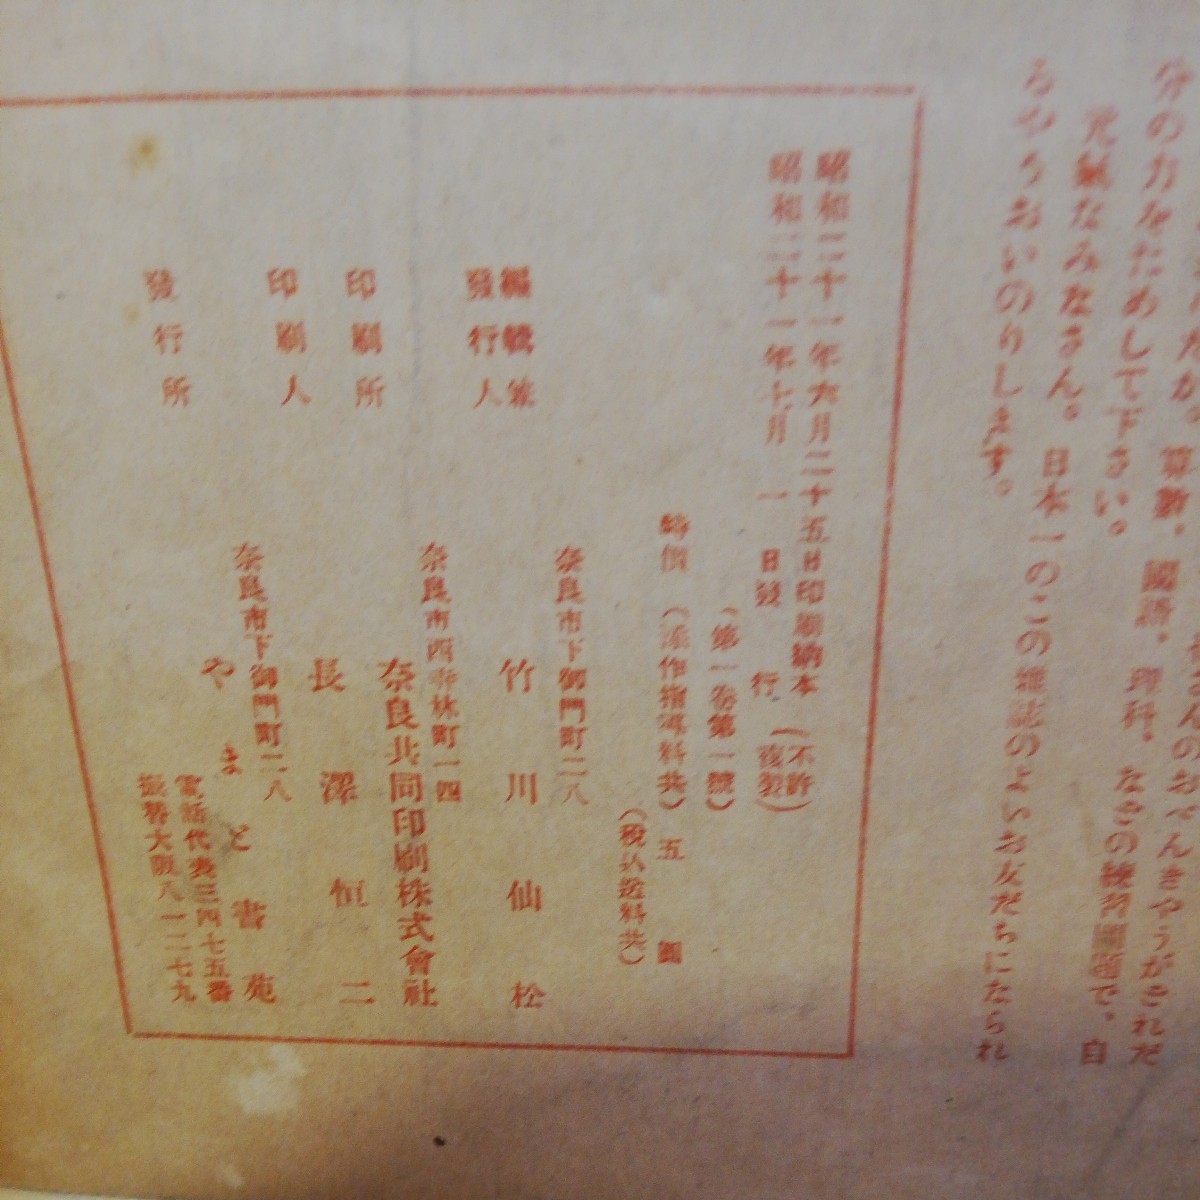 さんのおべんきやうがされだ
分の力をためして下さい。
算數、國語、理科、なさの練習問題で、自
元氣なみなさん。日本一のこの雜誌のよいお友だちになられ
るやうおいのりします。
昭和二十一年六月二十五日印刷納本（不許
昭和二十一年七月一日發行 複製）
（第一卷第一號）
特價（添作指導料共）五圓
（稅込送料共）
編輯兼
發行人
奈良市下御門町二八
竹川仙松
印刷所
奈良市西寺林町一四
奈良共同印刷株式會社
印刷人
長澤恒二
發行所
奈良市下御門町二八
やまと書苑
電話代表三四七五番
振替大阪八一二七九